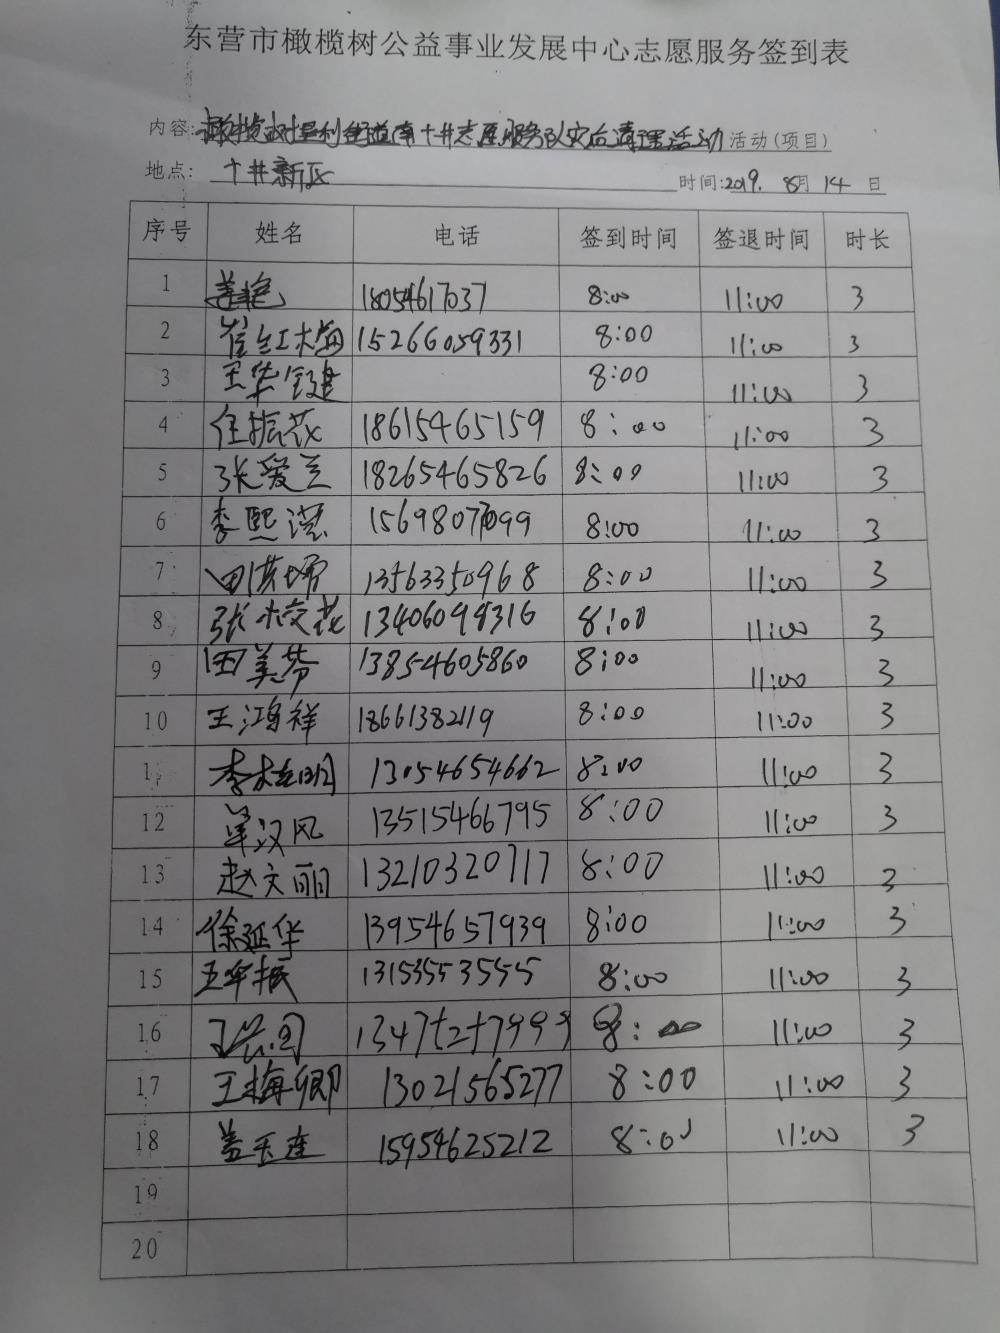 东营市橄榄树公益事业发展中心志愿服务签到表
内容: 橄榄树垦利街道南十井志愿服务队灾后清理活动 活动(项目)
地点: 十井新区 时间:2019. 8月 14 日
序号 姓名 电话 签到时间 签退时间 时长
1 姜艳 18054617037 8:00 11:00 3
2 崔红梅 15266059331 8:00 11:00 3
3 王华健 8:00 11:00 3
4 任振花 18615465159 8:00 11:00 3
5 张爱兰 18265465826 8:00 11:00 3
6 李熙 8:00 11:00 3
7 田 13563350968 8:00 11:00 3
8 张 花 8:00 11:00 3
9 田美芬 13854605860 8:00 11:00 3
10 王鸿祥 18661382119 8:00 11:00 3
1 李 13054654662 8:00 11:00 3
12 汉风 13515466795 8:00 11:00 3
13 赵文丽 13210320717 8:00 11:00 3
14 徐延华 13954657939 8:00 11:00 3
15 振 13153553555 8:00 11:00 3
16 8:00 11:00 3
17 王梅卿 13021565277 8:00 11:00 3
18 盖玉连 15954625212 8:00 11:00 3
19
20